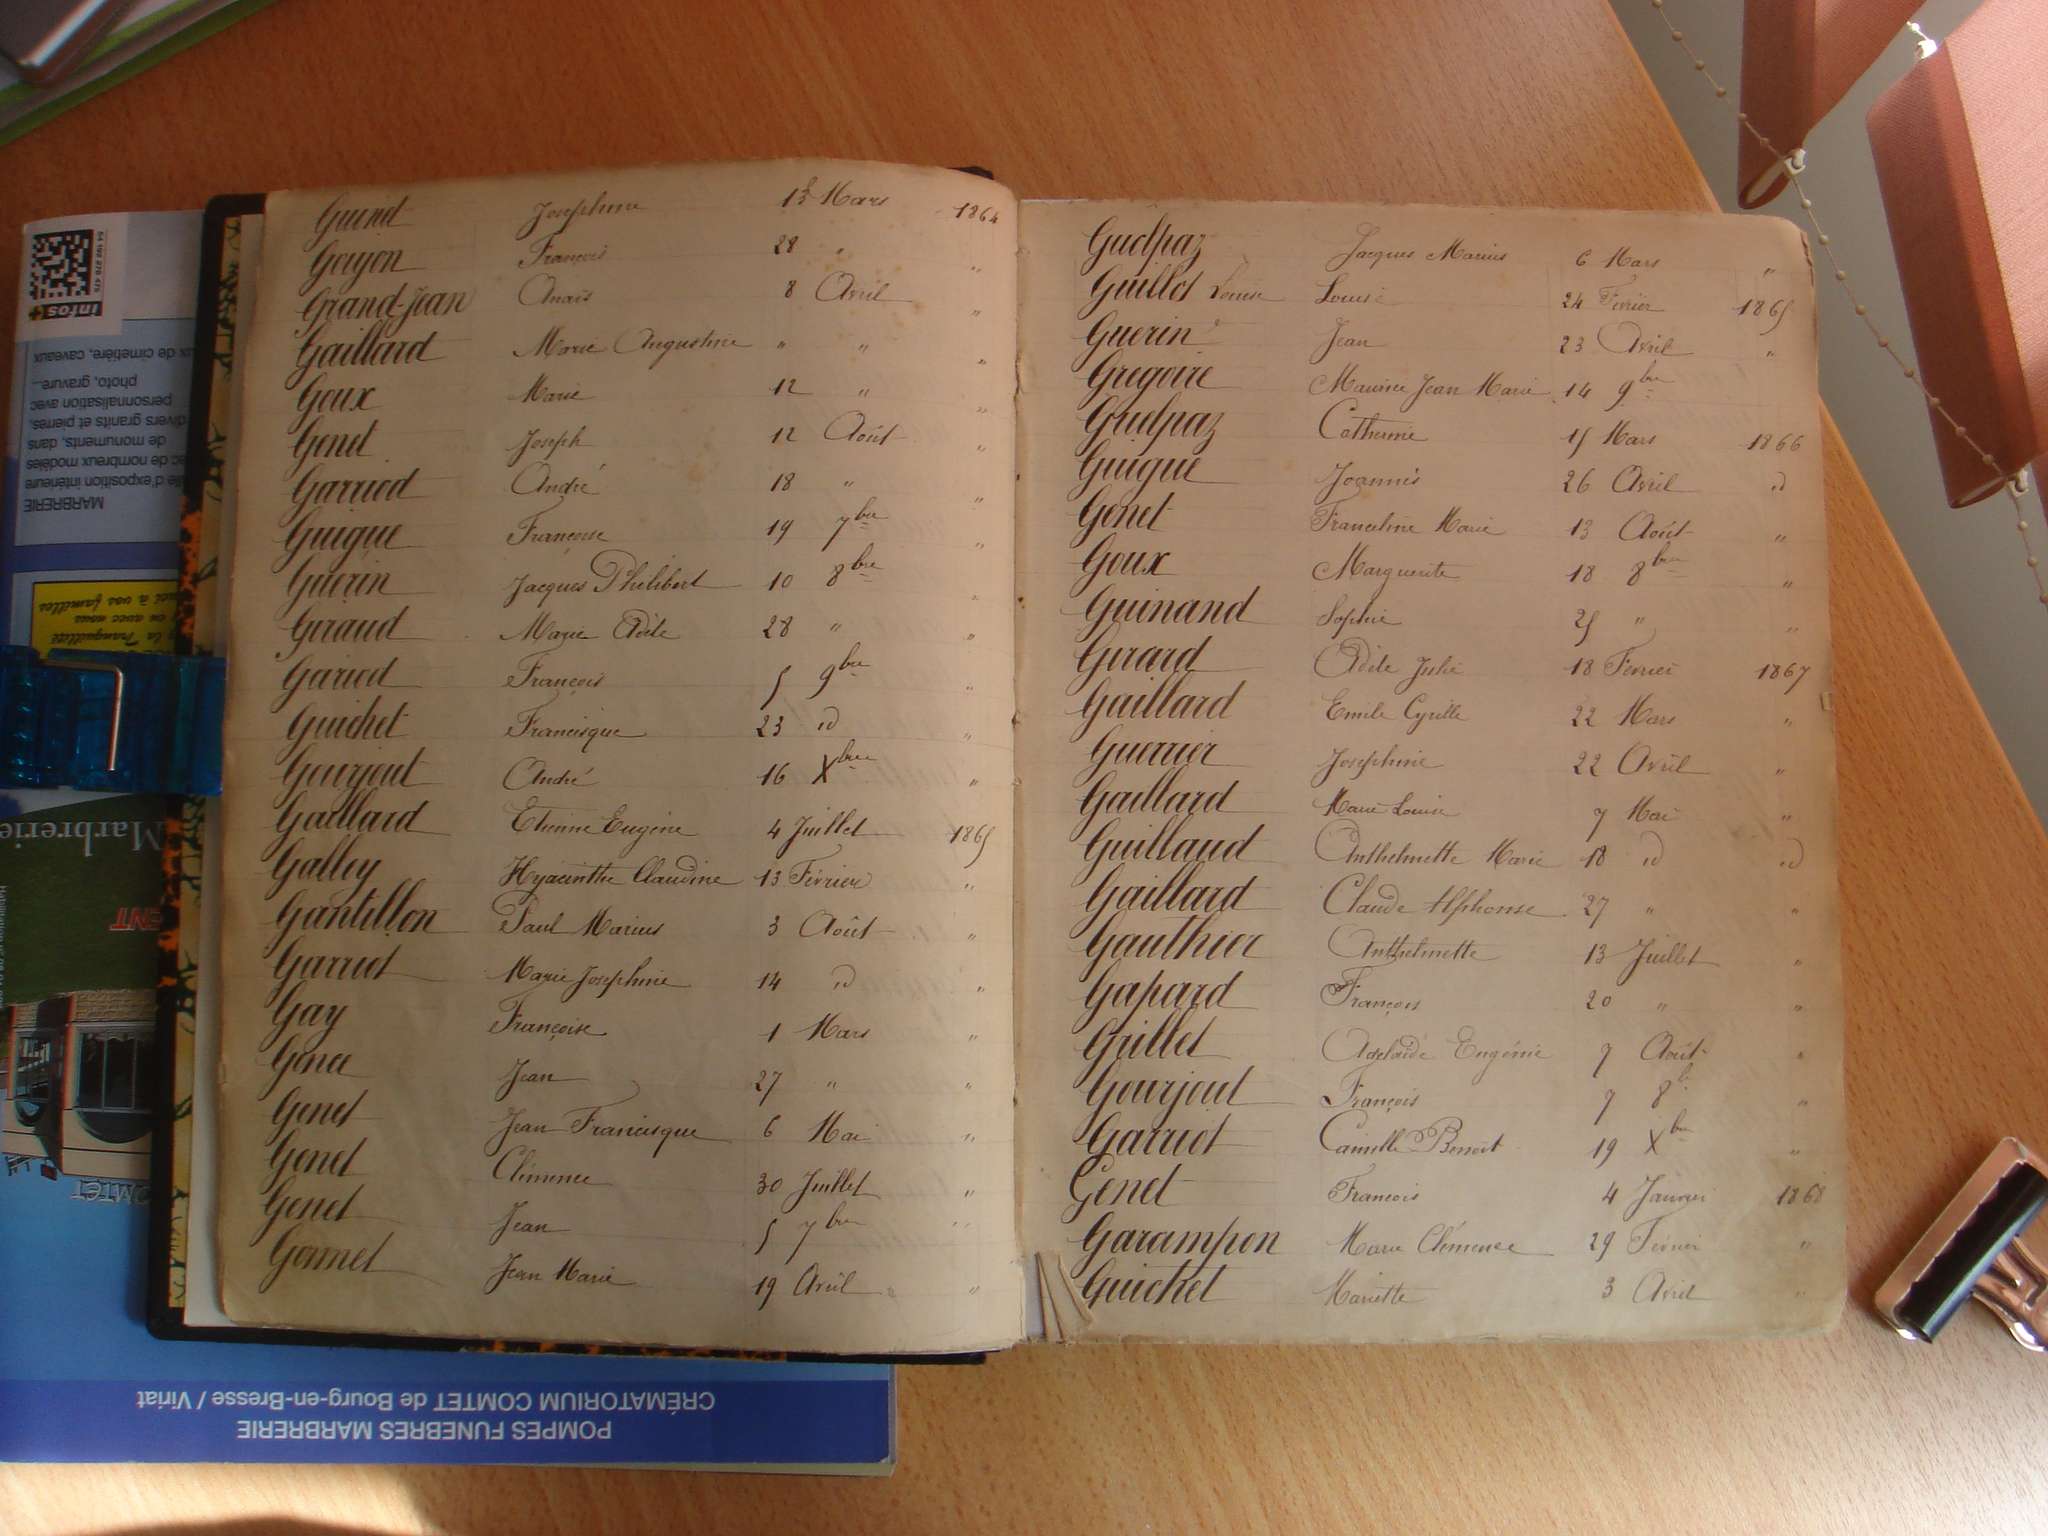 Guinet Josephine 15 Mars 1864
Goyon François 28 " "
Grand-Jean Anaïs 8 Avril "
Gaillard Marie Augustine " " "
Goux Marie 12 " "
Genet Joseph 12 Août "
Garriod André 18 " "
Guigue Françoise 19 7bre "
Guerin Jacques Philibert 10 8bre "
Giraud Marie Adèle 28 " "
Gariod François 5 9bre "
Guichet Francisque 23 id "
Gourjout André 16 Xbre "
Gaillard Etienne Eugène 4 Juillet 1865
Galley Hyacinthe Claudine 13 Février "
Gantillon Paul Marius 3 Août "
Garriot Marie Josephine 14 id "
Gay Françoise 1 Mars "
Jean 27 " "
Genet Jean Francisque 6 Mai "
Genet Clémence 30 Juillet "
Genet Jean 5 7bre "
Gonnet Jean Marie 19 Avril "
Guelpaz Jacques Marius 6 Mars "
Guillot Louise Louise 24 Février 1865
Guerin Jean 23 Avril "
Gregoire Maurice Jean Marie 14 9bre
Guelpaz Catherine 15 Mars 1866
Guigue Joannès 26 Avril id
Genet Franceline Marie 13 Août "
Goux Marguerite 18 8bre "
Guinand Sophie 25 " "
Girard Adèle Julie 18 Février 1867
Gaillard Emile Cyrille 22 Mars "
Guerrier Josephine 22 Avril "
Gaillard Marie Louise 7 Mai "
Guillaud Anthelmette Marie 18 id id
Gaillard Claude Alphonse 27 " "
Gauthier Anthelmette 13 Juillet "
Gapard François 20 " "
Grillet Adelaïde Eugénie 7 Août "
Gourjout François 7 8b "
Garriot Camille Benoit 19 Xbre "
Genet François 4 Janvier 1868
Garampon Marie Clémence 29 Février "
Guichet Mariette 3 Avril "
infos+
MARBRERIE
d'exposition intérieure
de nombreux modèles
de monuments, dans
divers granits et pierres,
personnalisation avec
photo, gravure...
de cimetière, caveaux
la Tranquillité
avec nous
à vos familles
Marbrerie
POMPES FUNEBRES MARBRERIE
CRÉMATORIUM COMTET de Bourg-en-Bresse / Viriat